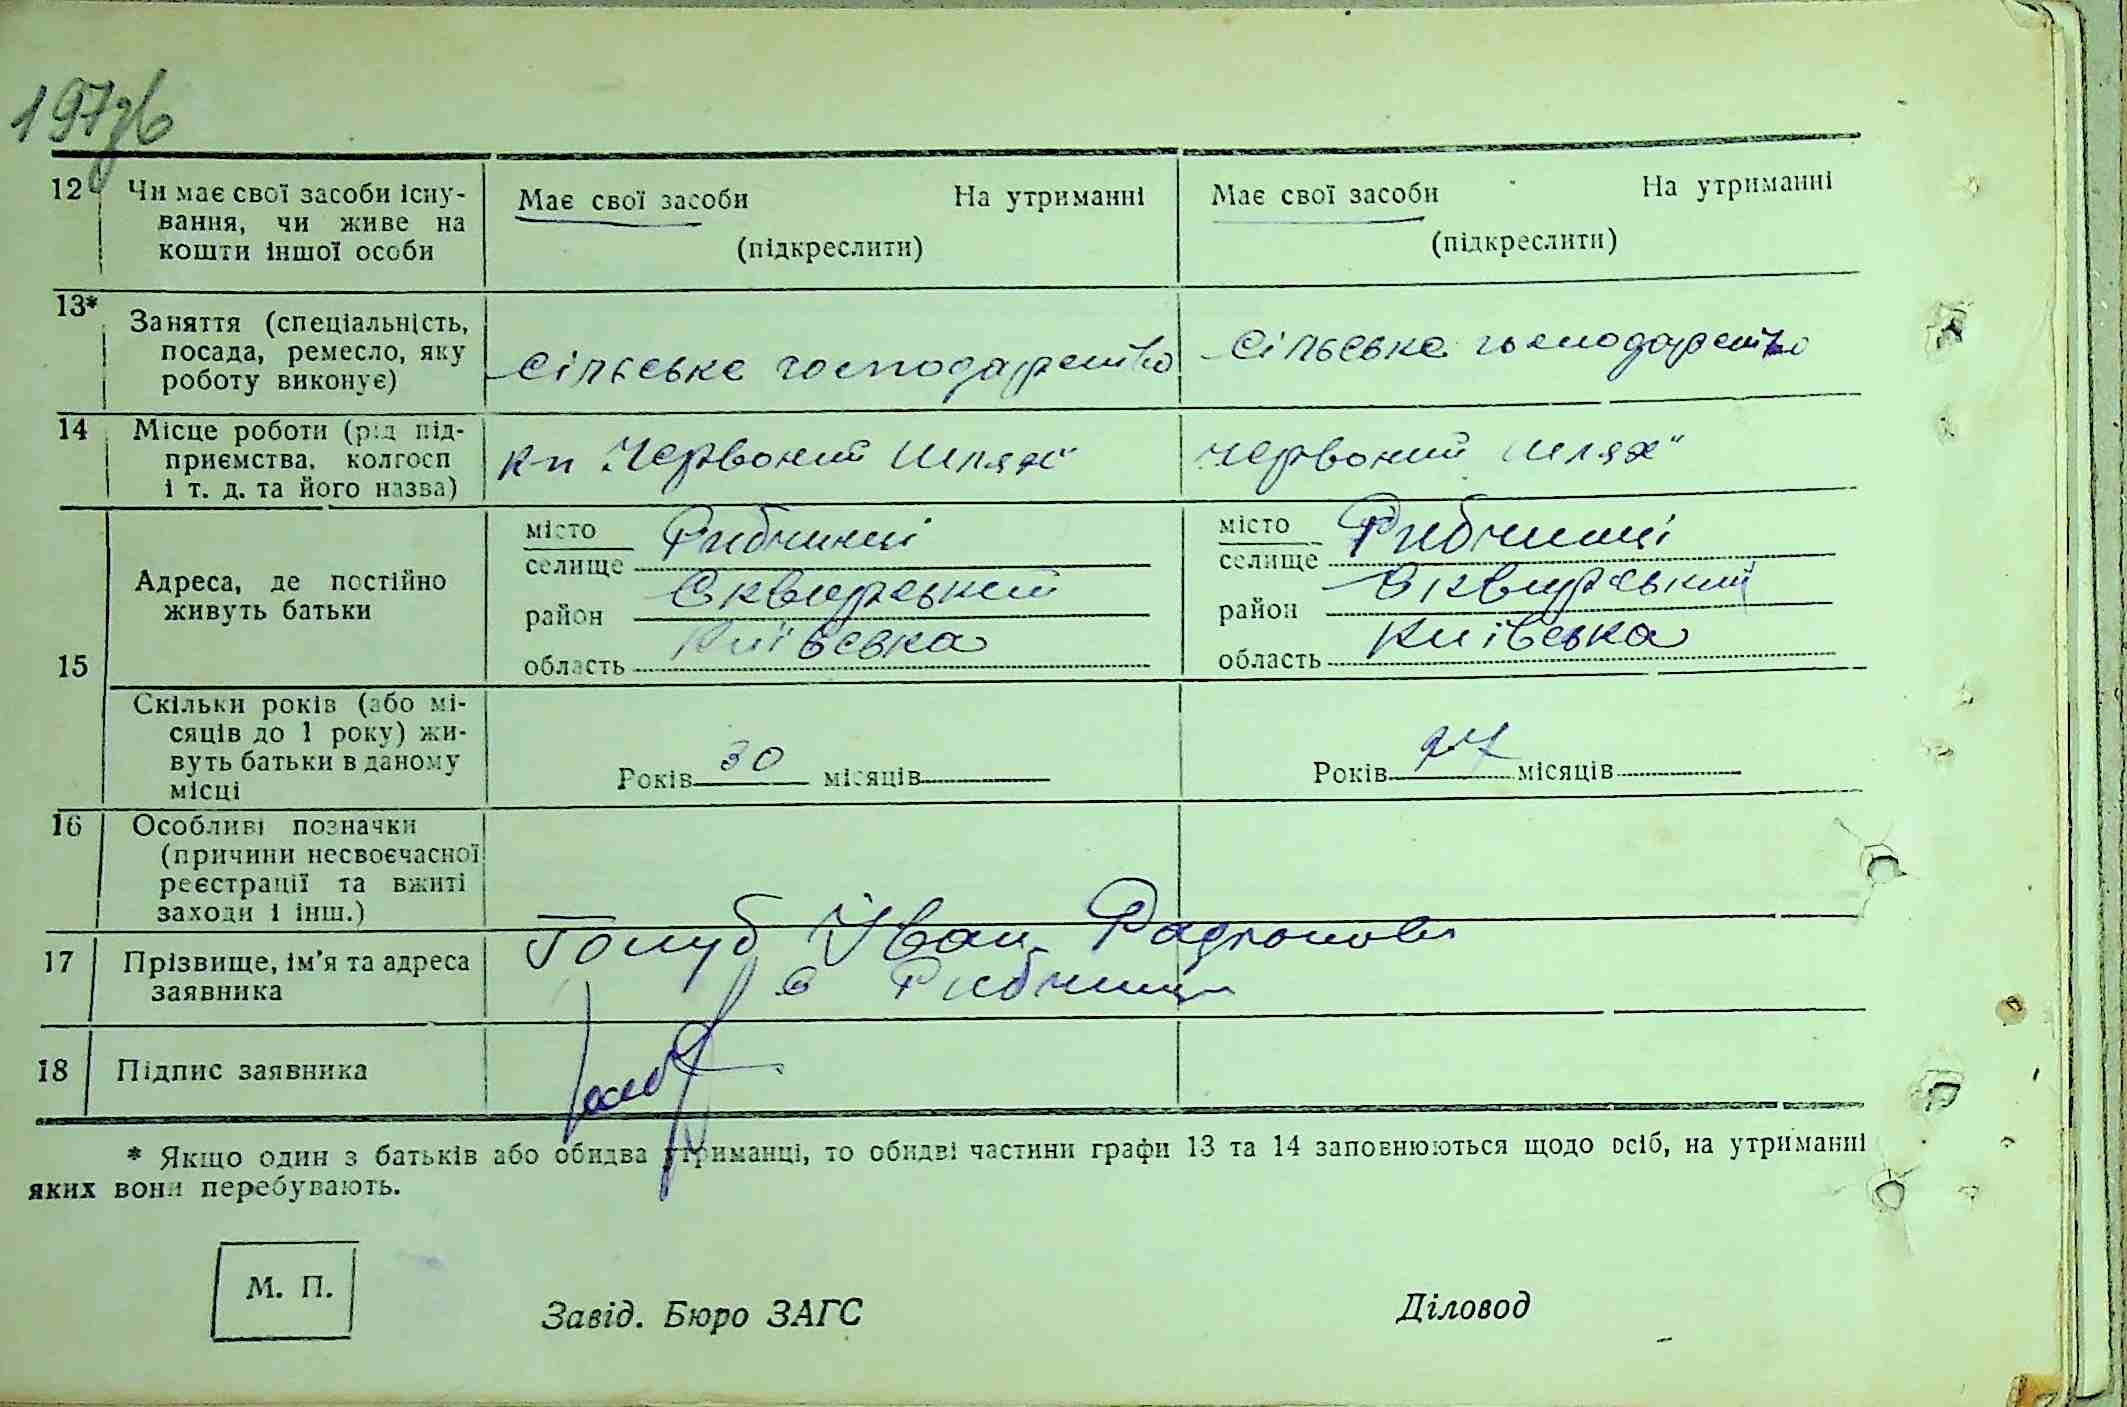 197зв
12 Чи має свої засоби існу- Має свої засоби На утриманні Має свої засоби На утриманні
вання, чи живе на (підкреслити) (підкреслити)
кошти іншої особи
13* Заняття (спеціальність,
посада, ремесло, яку сільське господарство сільське господарство
роботу виконує)
14 Місце роботи (рід під-
приємства, колгосп к-п „Червоний шлях" Червоний шлях"
і т. д. та його назва)
15
Адреса, де постійно
живуть батьки
місто Рибчинці місто Рибчинці
селище селище
район Сквирський район Сквирський
область Київська область Київська
15
Скільки років (або мі-
сяців до 1 року) жи-
вуть батьки в даному Років 30 місяців Років 27 місяців
місці
16 Особливі позначки
(причини несвоєчасної
реєстрації та вжиті
заходи і інш.)
17 Прізвище, ім'я та адреса Голуб Іван
заявника с Рибчинці
18 Підпис заявника
* Якщо один з батьків або обидва утриманці, то обидві частини графи 13 та 14 заповнюються щодо осіб, на утриманні
яких вони перебувають.
М. П.
Завід. Бюро ЗАГС Діловод